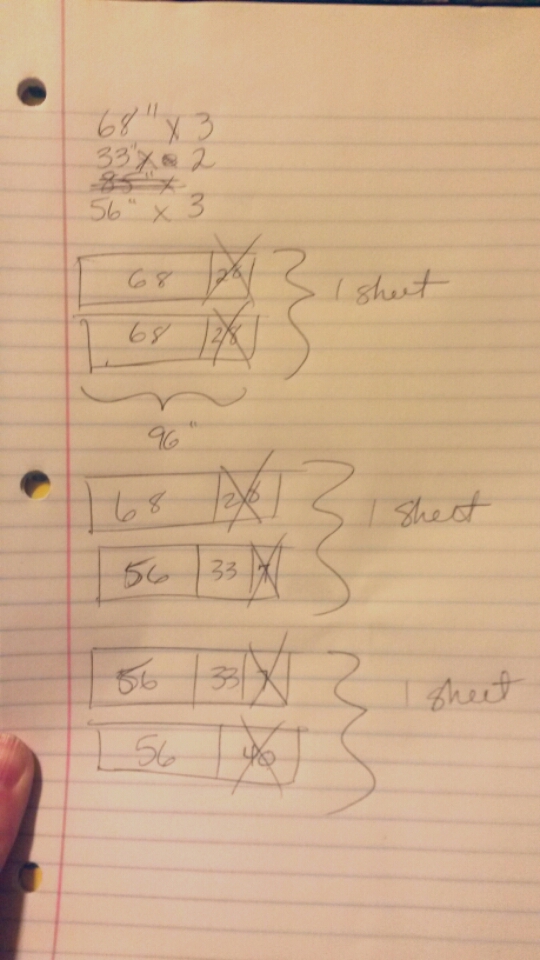 68" x 3
33" x 2
85" x
56" x 3
68 28
1 sheet
68 28
96"
68 28
1 sheet
56 33 7
56 33 7
1 sheet
56 40